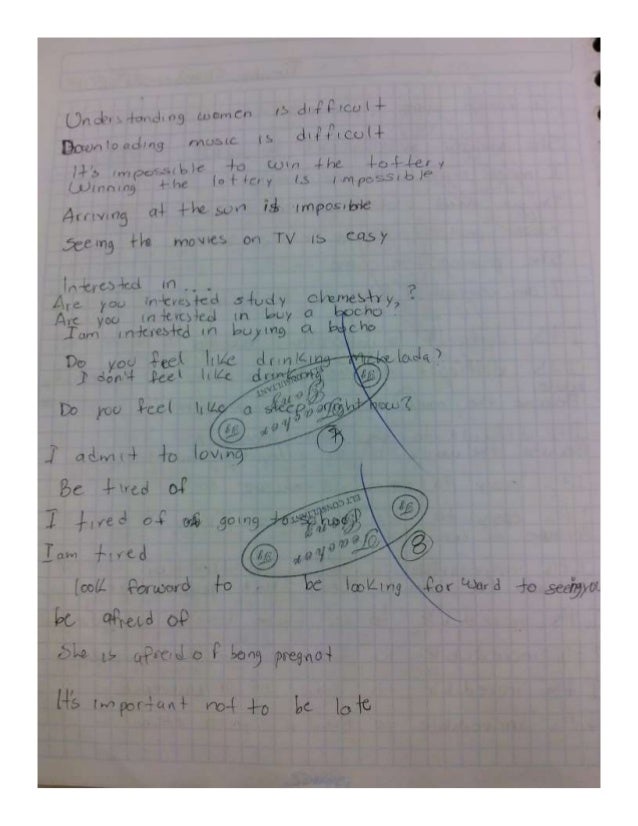 Understanding women is difficult
Downloading music is difficult
It's impossible to win the tottery
Winning the lottery is impossible
Arriving at the sun is imposible
Seeing the movies on TV is easy
Interested in....
Are you interested study chemestry,?
Are you interested in buy a bocho
I am interested in buying a bocho
Do you feel like drinking Michelada?
I don't feel like drinking
Do you feel like a sleep right now?
Teacher
ELT CONSULTANT
7
I admit to loving
Be tired of
I tired of going to school
Teacher
ELT CONSULTANT
8
I am tired
look forward to be looking for ward to seeing you
be afreid of
She is afreid of being pregnot
It's important not to be late